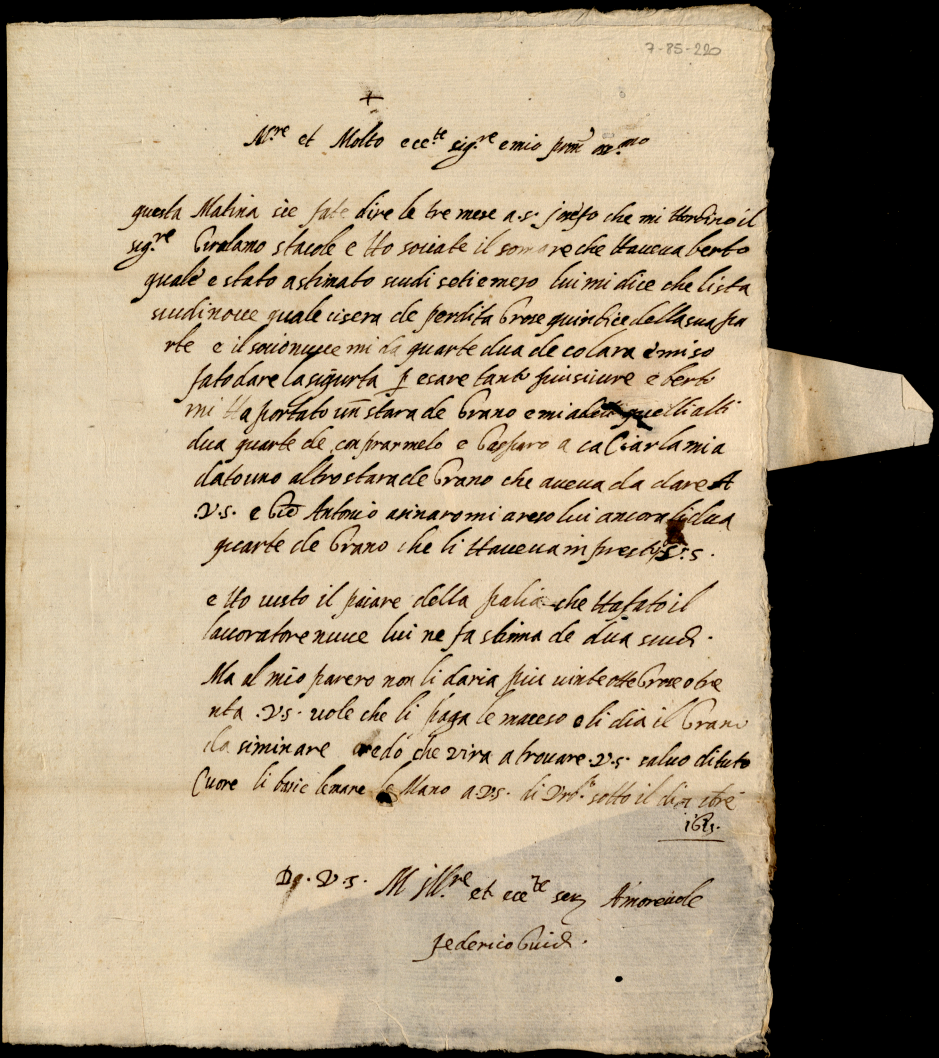 7-85-220
+
et Molto ecc.te sig.re e mio
questa Matina sèe fate dire le tre mese a.s. che mi Hordino il
sig.re Girolamo stacole e Ho sociate il somare che Haveva berto
quale e stato astimato scudi seti e meso lui mi dice che li sta
scudi nove quale ci sera de perdita Grose quindice della sua pa
rte e il mi da quarte dua de co lara e mi so
fato dare la sigurta p esare tanto piu sicure e berto
mi Ha portato un stara de Grano e mi quelli alti
dua quarte de conprarmelo e Gasparo a mia
dato uno altro stara de Grano che aveva da dare A
.V.S. e Antonio asinaro mi a reso lui ancora li dua
quarte de Grano che li Haveva in presto V.S.
e Ho visto il paiare della palia che Ha fato il
lavoratore lui ne fa stima de dua scudi.
Ma al mio parero non li daria piu vinte otto Grose o tre
nta .V.S. vole che li paga le maceso e li dia il Grano
da siminare credo che vira a trovare .V.S. salvo di tuto
Cuore li basic le Mano a.V.S. di sotto il di
Di .V.S. M Ill.re et ecc.te Amorevole
federico Guidi.